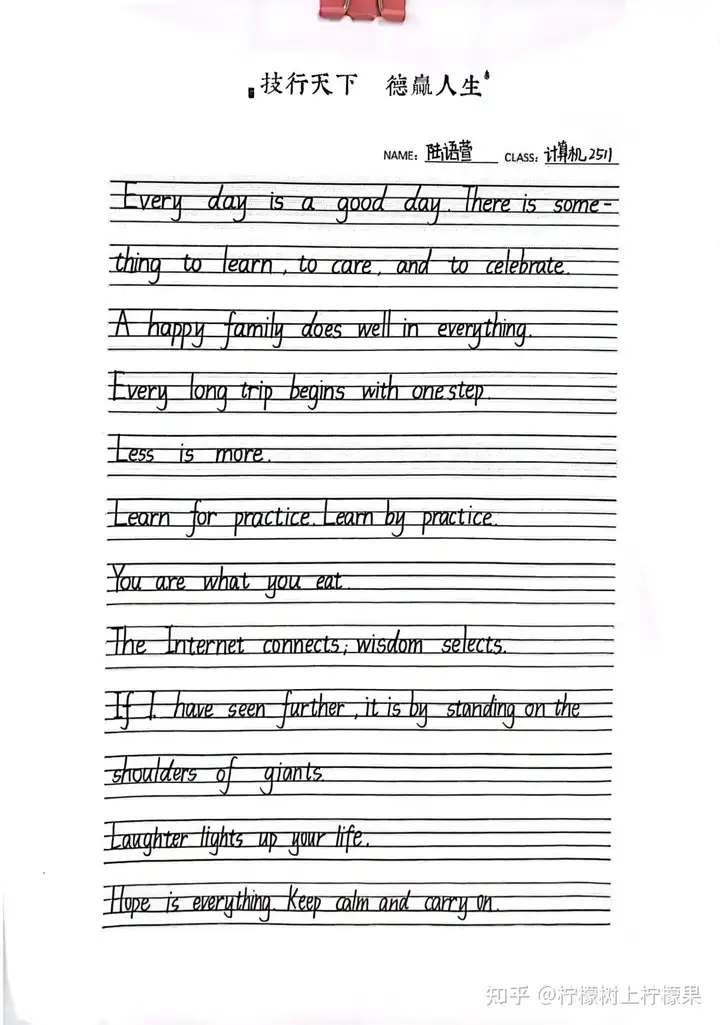 技行天下 德赢人生
NAME: 陆语萱 CLASS: 计算机2511
Every day is a good day. There is some-
thing to learn, to care, and to celebrate.
A happy family does well in everything.
Every long trip begins with one step.
Less is more.
Learn for practice. Learn by practice.
You are what you eat.
The Internet connects; wisdom selects.
If I have seen further, it is by standing on the
shoulders of giants.
Laughter lights up your life.
Hope is everything. Keep calm and carry on.
知乎 @柠檬树上柠檬果